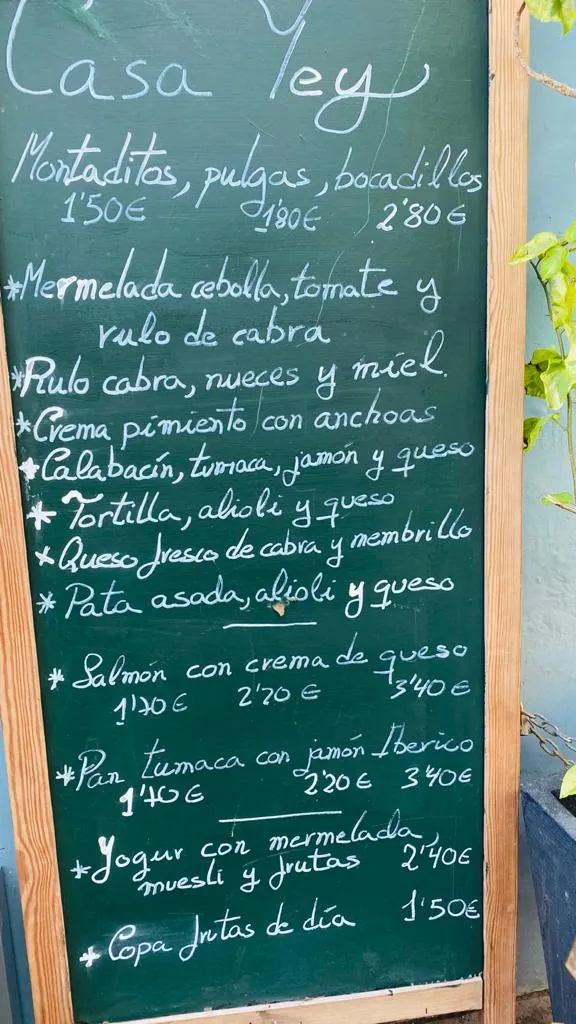 Casa Yey
Montaditos, pulgas, bocadillos
1'50€ 1'80€ 2'80€
*Mermelada cebolla, tomate y
rulo de cabra
*Rulo cabra, nueces y miel.
*Crema pimiento con anchoas
*Calabacín, tumaca, jamón y queso
* Tortilla, alioli y queso
* Queso fresco de cabra y membrillo
* Pata asada, alioli y queso
* Salmón con crema de queso
1'70€ 2'20€ 3'40€
*Pan tumaca con jamón Iberico
1'70€ 2'20€ 3'40€
*Yogur con mermelada,
muesli y frutas 2'40€
* Copa frutas de día 1'50€